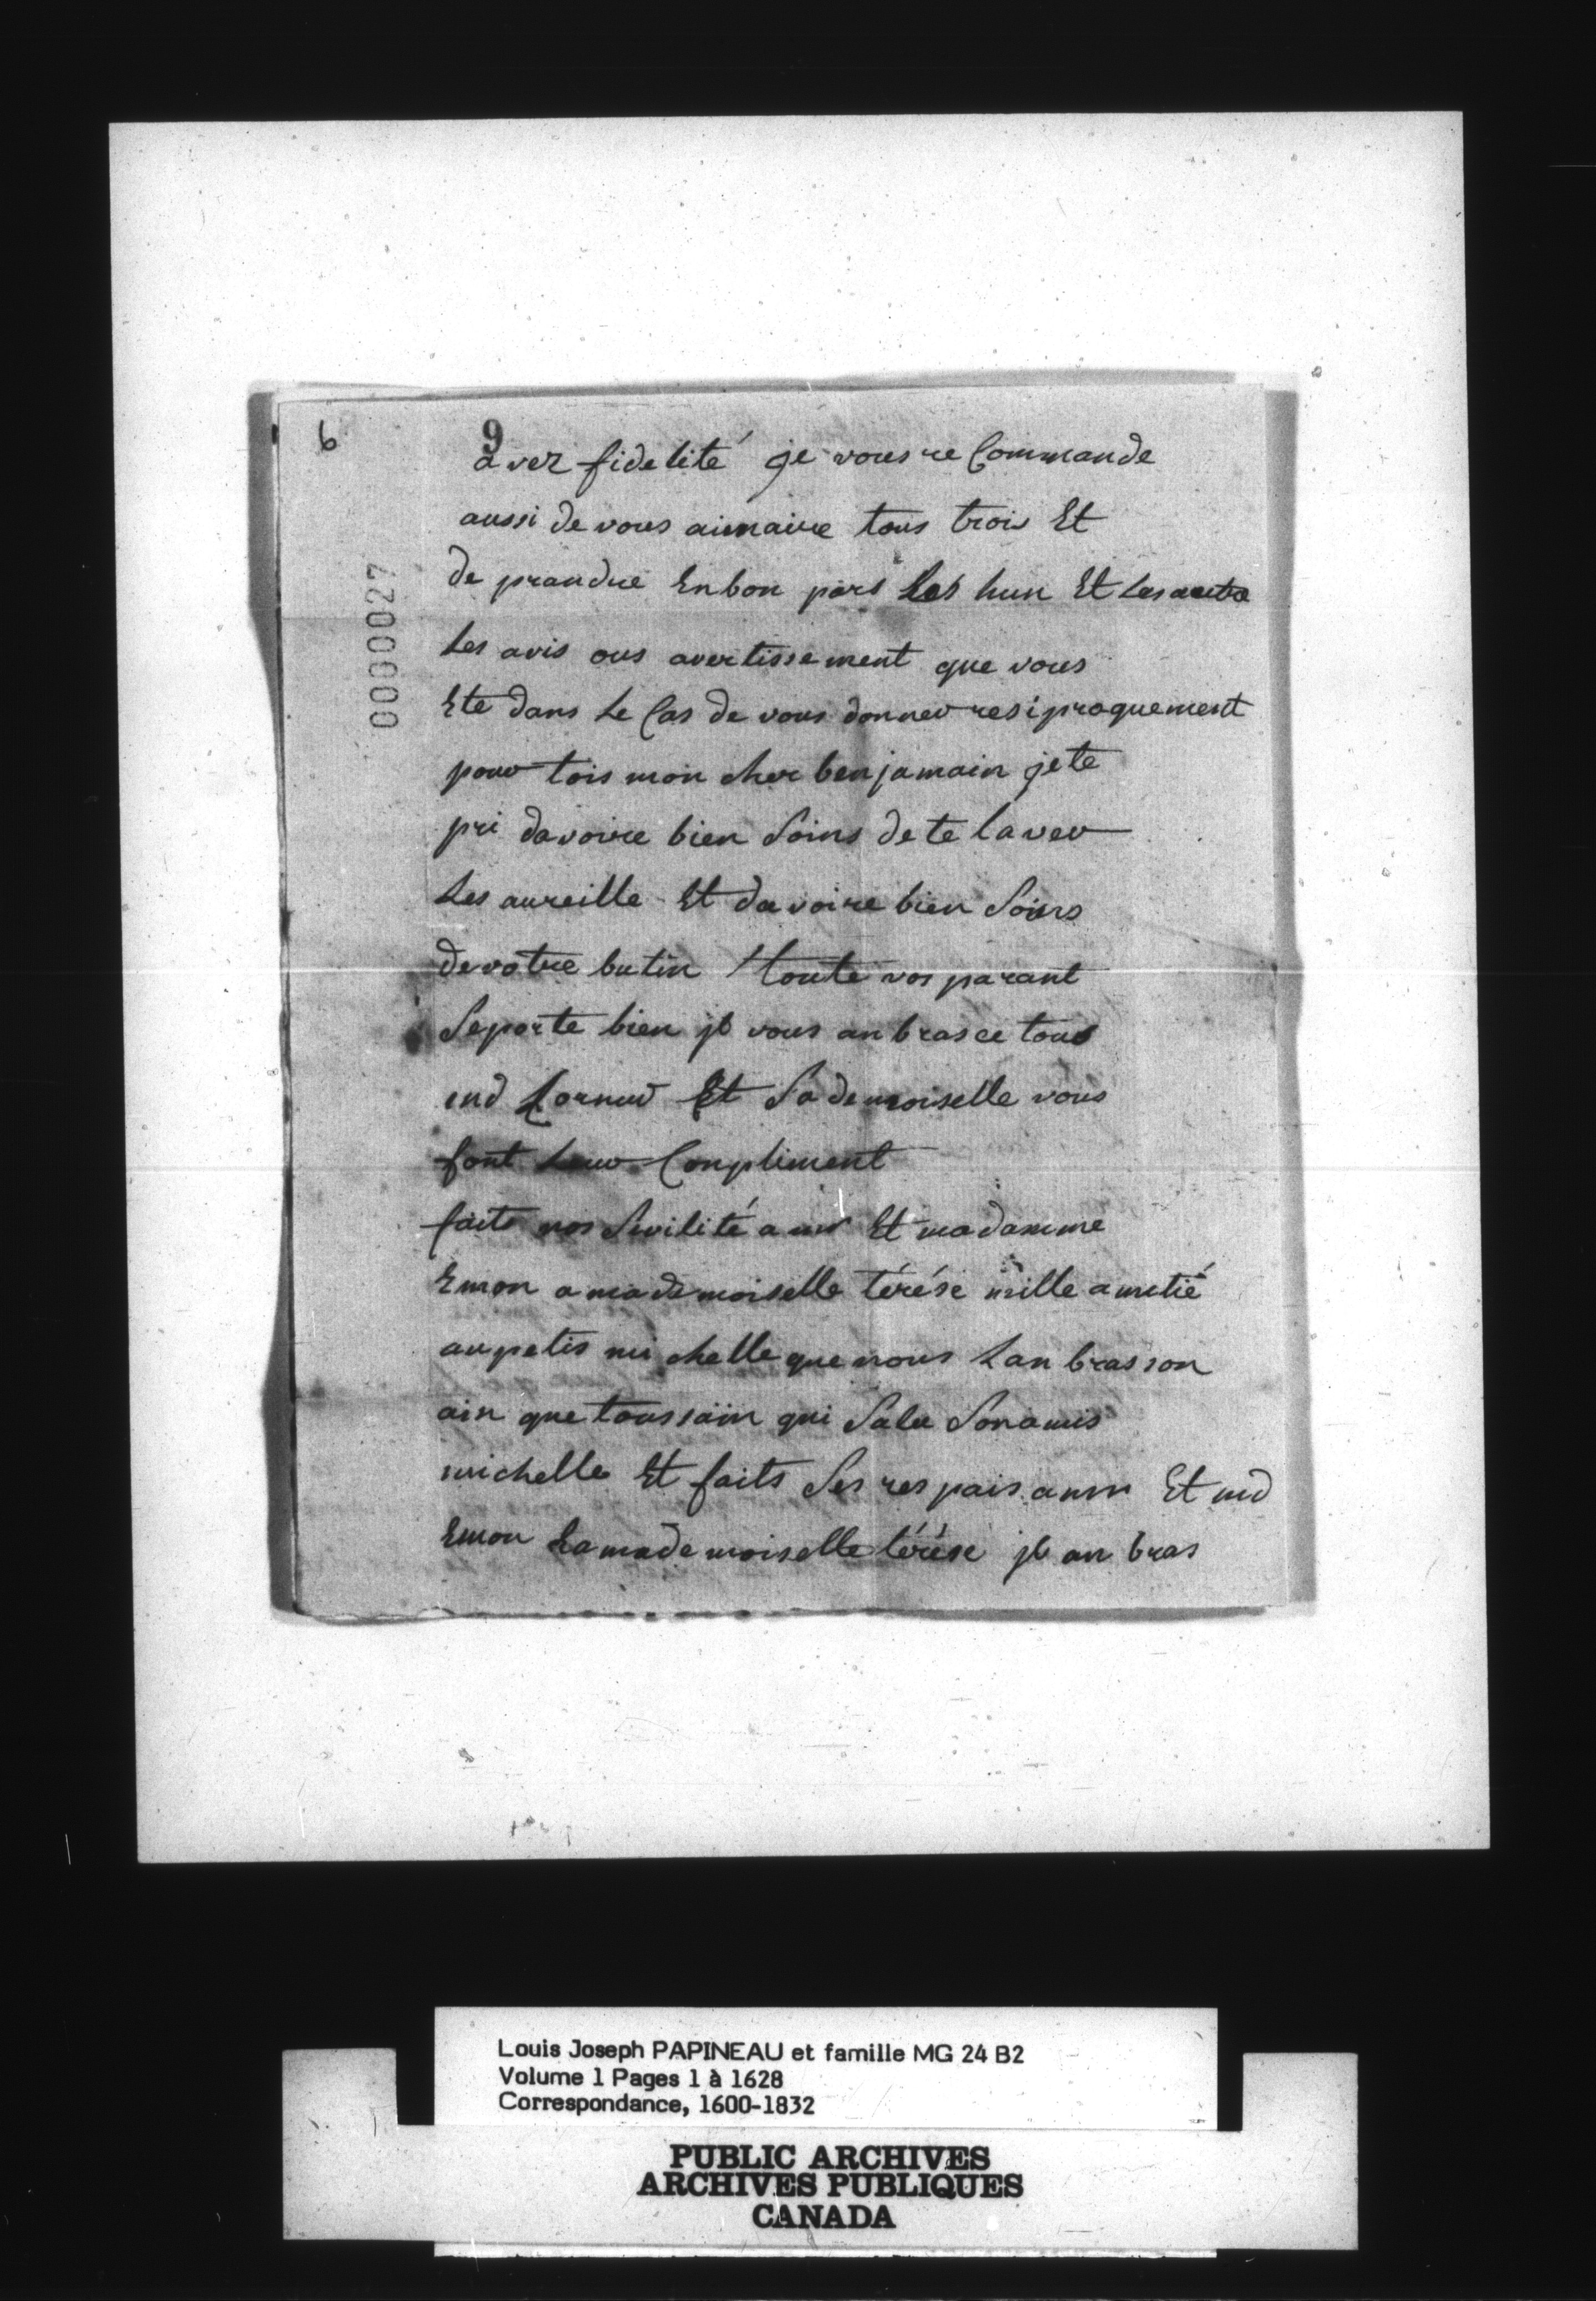 6
9
aver fidelité je vous re Commande
aussi de vous aimaire tous trois Et
de prandre Enbon pars Les hun Et Les autre
Les avis ous avertissement que vous
Ete dans Le Cas de vous donner resiproquement
pour tois mon cher benjamain je te
pri davoire bien Soins de te laver
Les aureille Et davoire bien Soins
de votre butin toute vos parant
Seporte bien je vous anbrasce tous
md Cornud Et Sa demoiselle vous
font Leur Conpliment
faite nos Sivilité a mr Et madamme
Emon a mademoiselle térése mille ametié
au petis michelle que nous Lanbrasson
ain que toussain qui Salu Sonamis
michelle Et faits Ses respais a mr Et md
Emon La mademoiselle térése je anbras
0000027
Louis Joseph PAPINEAU et famille MG 24 B2
Volume 1 Pages 1 à 1628
Correspondance, 1600-1832
PUBLIC ARCHIVES
ARCHIVES PUBLIQUES
CANADA